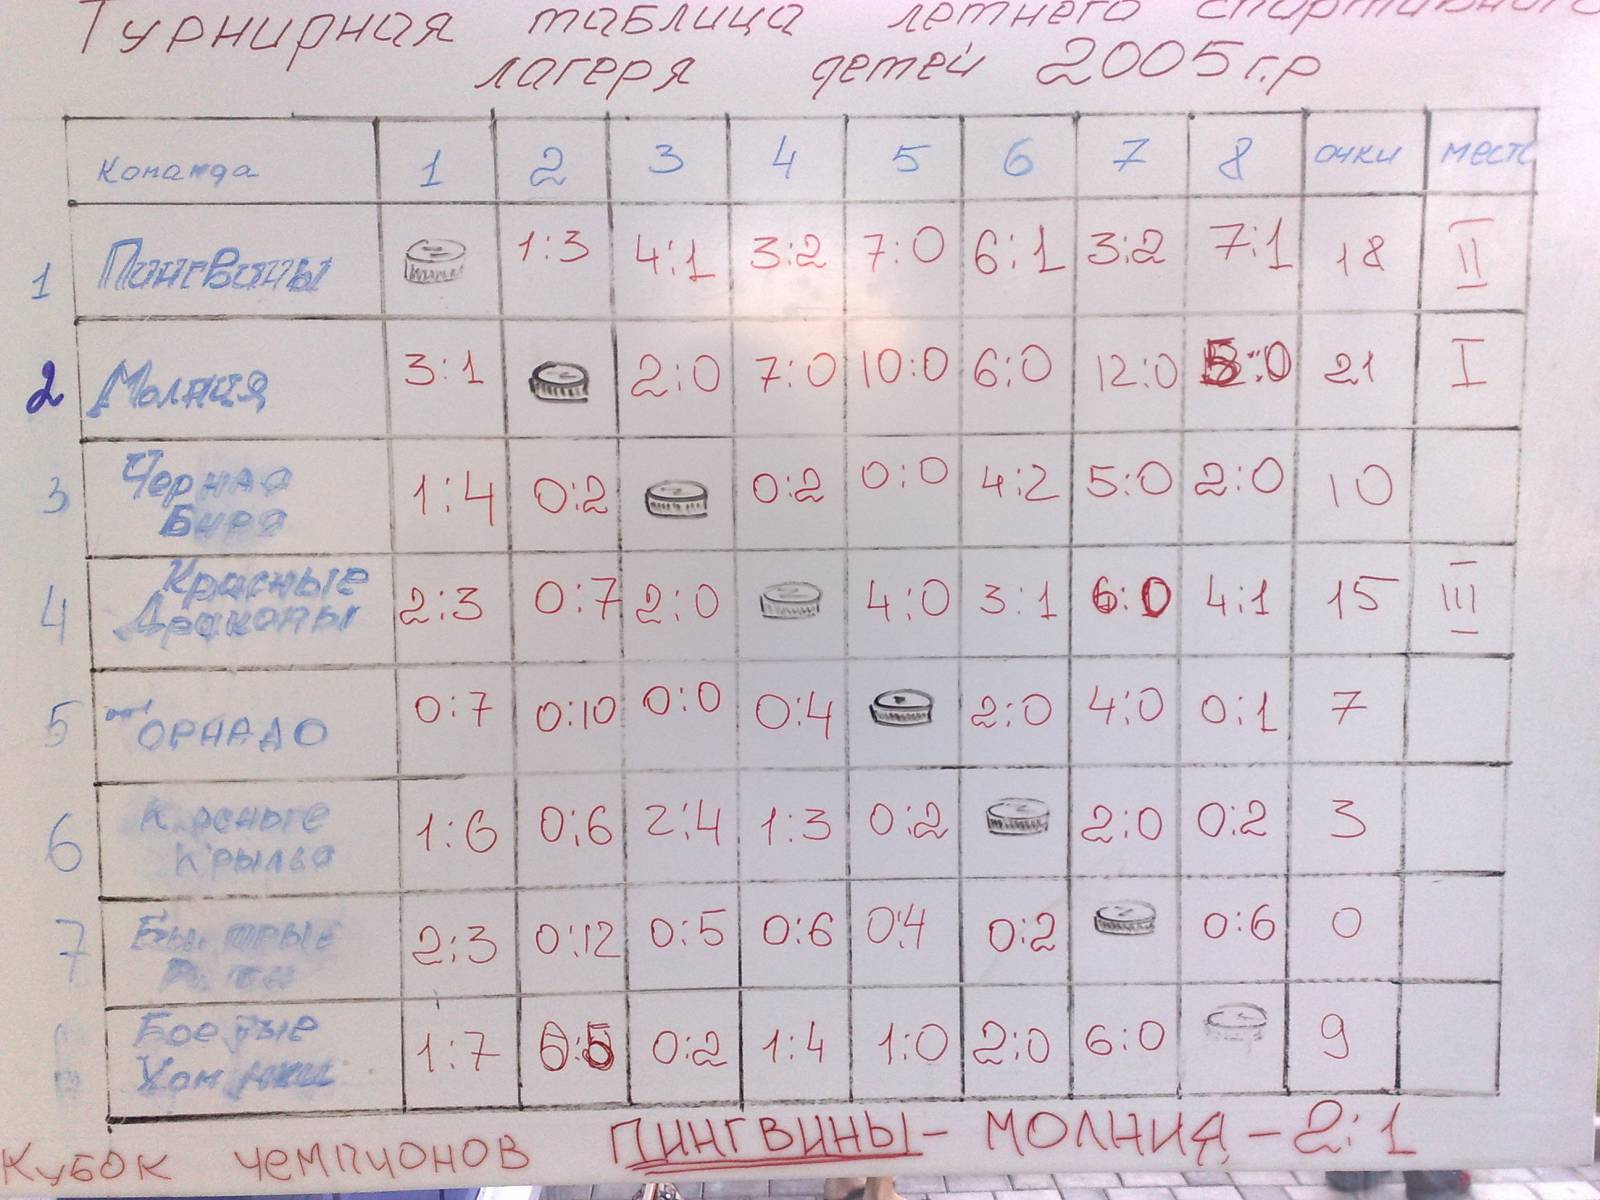 Турнирная таблица летнего спортивного
лагеря детей 2005 г.р
команда 1 2 3 4 5 6 7 8 очки место
1 Пингвины 1:3 4:1 3:2 7:0 6:1 3:2 7:1 18 II
2 Молния 3:1 2:0 7:0 10:0 6:0 12:0 5:0 21 I
3 Черная Буря 1:4 0:2 0:2 0:0 4:2 5:0 2:0 10
4 Красные Драконы 2:3 0:7 2:0 4:0 3:1 6:0 4:1 15 III
5 Торнадо 0:7 0:10 0:0 0:4 2:0 4:0 0:1 7
6 Красные Крылья 1:6 0:6 2:4 1:3 0:2 2:0 0:2 3
7 Быстрые 2:3 0:12 0:5 0:6 0:4 0:2 0:6 0
Боевые Хомячки 1:7 0:5 0:2 1:4 1:0 2:0 6:0 9
Кубок чемпионов ПИНГВИНЫ - МОЛНИЯ - 2:1